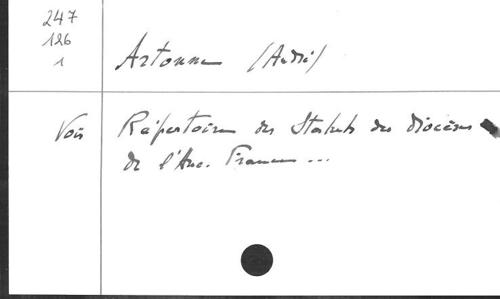 247
126
1
Artonne (André)
Voir Répertoire des Statuts des diocèses
de l'Anc. France ...